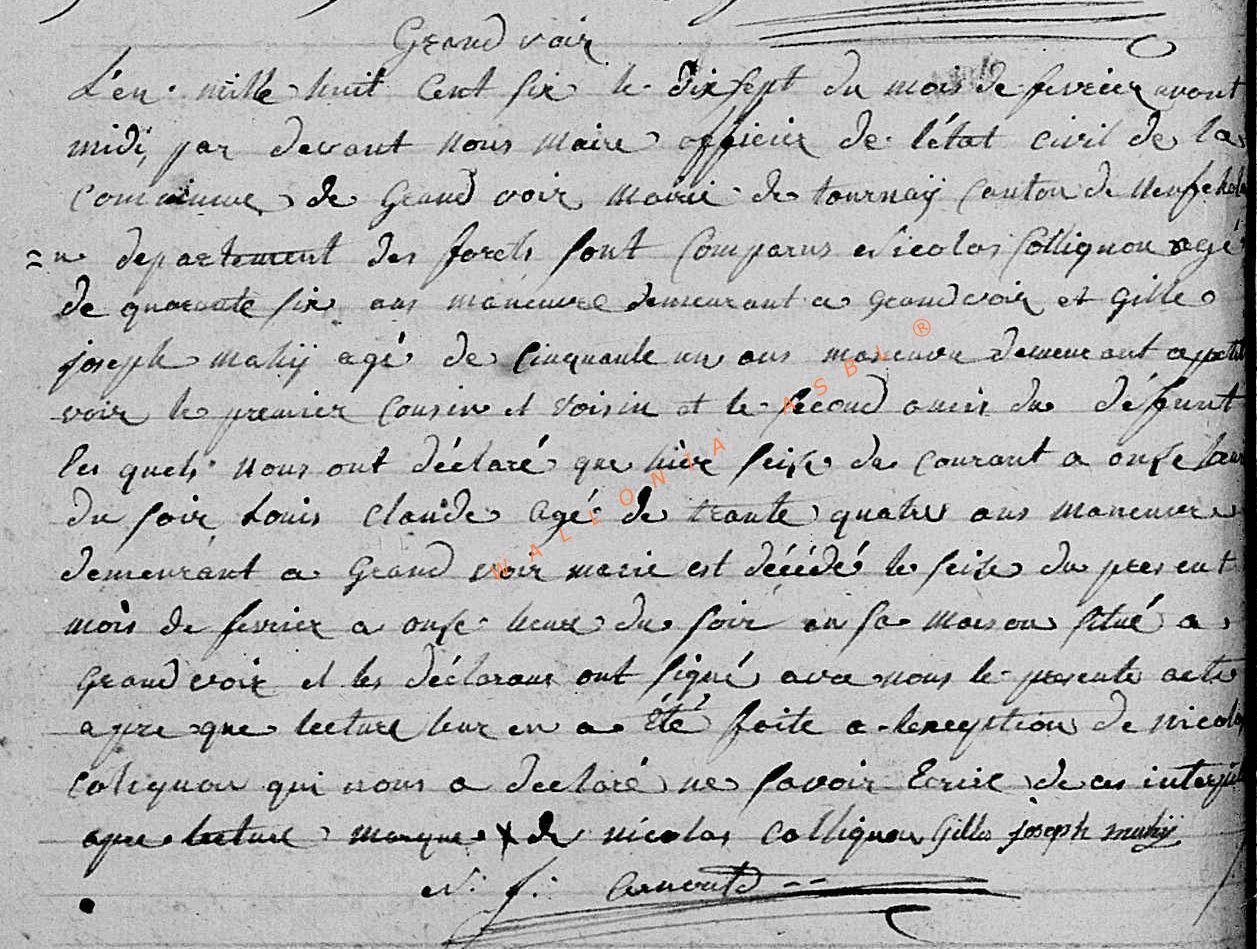 Grand voir
L'en mille huit Cent six le dix sept du mois de fevrier avant
midi par devant nous maire officier de l'état Civil de la
Commune de Grand voir mairie de tournaÿ Canton de Neufchate
=u departement des forets sont Comparus Nicolas Collignon agé
de quarante six ans maneuvre demeurant a Grandvoir et Gille
joseph mahÿ agé de Cinquante un ans maneuvre demeurant a petit
voir le premier Cousin et Voisin et le second amis du défunt
les quels nous ont déclaré que hièr seise du Courant a onse heur
du soir Louis Claude agé de trante quatre ans maneuvre
demeurant a Grand voir marié est décédé le seise du present
mois de fevrier a onse heure du soir en sa maison situé a
Grand voir et les déclarans ont signé avec nous le presente acte
apre que lecture leur en a été faite a lexeption de Nicolas
Colignon qui nous a declaré ne savoir Ecrire de ces
apre lecture marque X de nicolas Collignon Gilles joseph mahÿ
N: f: Arnould
WALLONIA ASBL ®